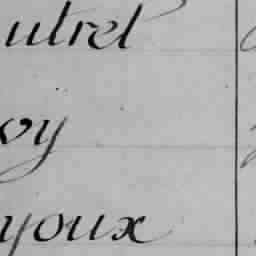 utrel
oy
youx